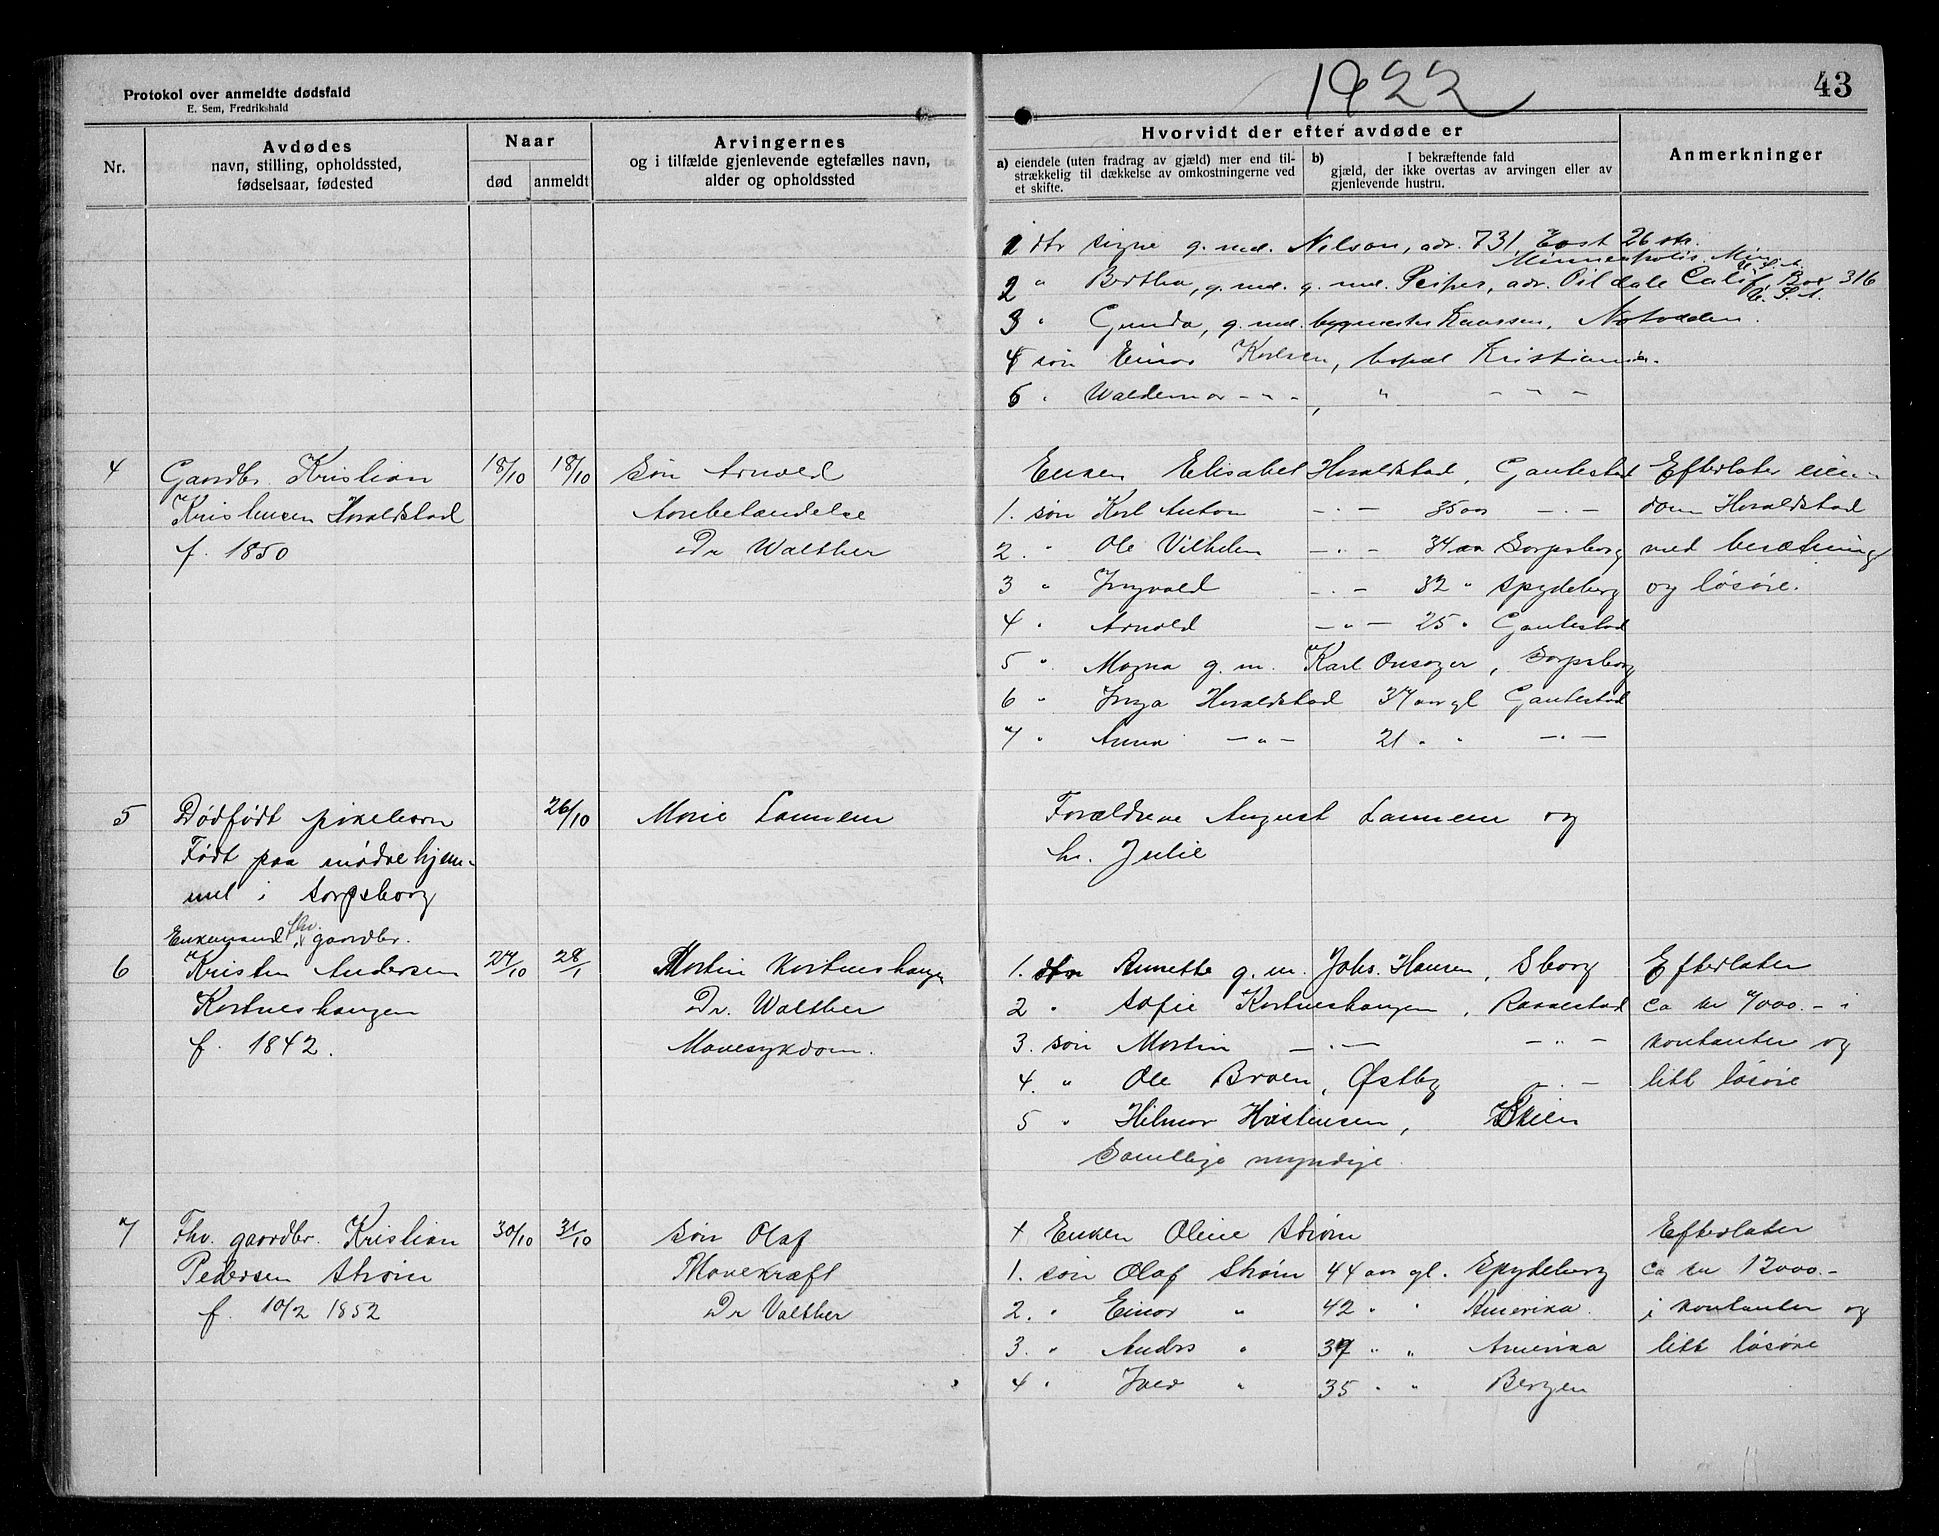 1922
43
Protokol over anmeldte dødsfald
E. Sem, Fredrikshald
Nr.
Avdødes
navn, stilling, opholdssted,
fødselsaar, fødested
Naar
død anmeldt
Arvingernes
og i tilfælde gjenlevende egtefælles navn,
alder og opholdssted
Hvorvidt der efter avdøde er
a) eiendele (uten fradrag av gjæld) mer end til-
strækkelig til dækkelse av omkostningerne ved
et skifte.
b) I bekræftende fald
gjæld, der ikke overtas av arvingen eller av
gjenlevende hustru.
Anmerkninger
1 dtr Signe g. med. Nilson, adr. 731 East 26 str.
Minneapolis Minn.
U.S.A.
2 " Bertha, g. med. g. med. Peiper, adr. Oildale Calif. Box 316
U.S.A.
3 " Gunda, g. med. bygmester Kaassen, Notodden.
4 søn Einar Karlsen, bopæl Kristiania.
5 " Waldemar - " - , " - " -
4 Gaardbr. Kristian 18/10 18/10 Søn Arnold
Kristensen Haraldstad Aarebetændelse
f. 1850 Dr Walther
Enken Elisabet Haraldstad, Gautestad Efterlater eien-
1. søn Karl Anton - " - 35 aar - " - dom Haraldstad
2. " Ole Vilhelm - " - 34 aar Sarpsborg med besætning
3 " Ingvald - " - 32 " Spydeberg og løsøre.
4 " Arnold - " - 25 " Gautestad
5 " Magna g. m. Karl Onsager, Sarpsborg
6 " Inga Haraldstad 37 aar gl Gautestad
7 " Anna - " - 21 " " - " -
5 Dødfødt pikebarn 26/10 Marie Lannem
Født paa mødrehjem-
met i Sarpsborg
Forældrene August Lannem og
h. Julie
Enkemand, fhv. gaardbr.
6 Kristen Andersen 27/10 28/1 Martin Kortneshaugen
Kortneshaugen Dr. Walther
f. 1842. Mavesykdom.
1. dtr Annette g. m. Johs. Hansen, Sborg Efterlater
2 " Sofie Kortneshaugen, Rakkestad ca kr 7000.- i
3. søn Martin - " - - " - kontanter og
4. " Ole Braen, Østby - " - litt løsøre
5 " Hilmar Kristensen, Skien
Samtlige myndige.
7 Fhv. gaardbr. Kristian 30/10 31/10 Søn Olaf
Pedersen Strøm Mavekræft
f. 10/2 1852 Dr Valther
+ Enken Oline Strøm Efterlater
1. søn Olaf Strøm 44 aar gl. Spydeberg ca kr 12000.-
2. " Einar " 42 " " Amerika. i kontanter og
3. " Anders " 37 " " Amerika litt løsøre
4 " Iver " 35 " " Bergen